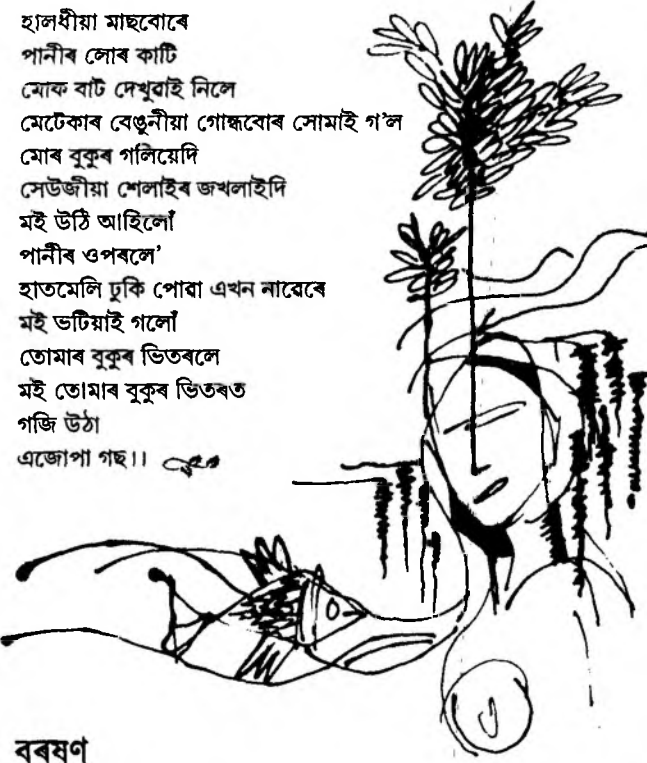 হালধীয়া মাছবোৰে
পানীৰ লোৰ কাটি
মোক বাট দেখুৱাই নিলে
মেটেকাৰ বেঙুনীয়া গোন্ধবোৰ সোমাই গ'ল
মোৰ বুকুৰ গলিয়েদি
সেউজীয়া শেলাইৰ জখলাইদি
মই উঠি আহিলোঁ
পানীৰ ওপৰলে'
হাতমেলি ঢুকি পোৱা এখন নাৱেৰে
মই ভটিয়াই গলোঁ
তোমাৰ বুকুৰ ভিতৰলে
মই তোমাৰ বুকুৰ ভিতৰত
গজি উঠা
এজোপা গছ।।
বৰষণ